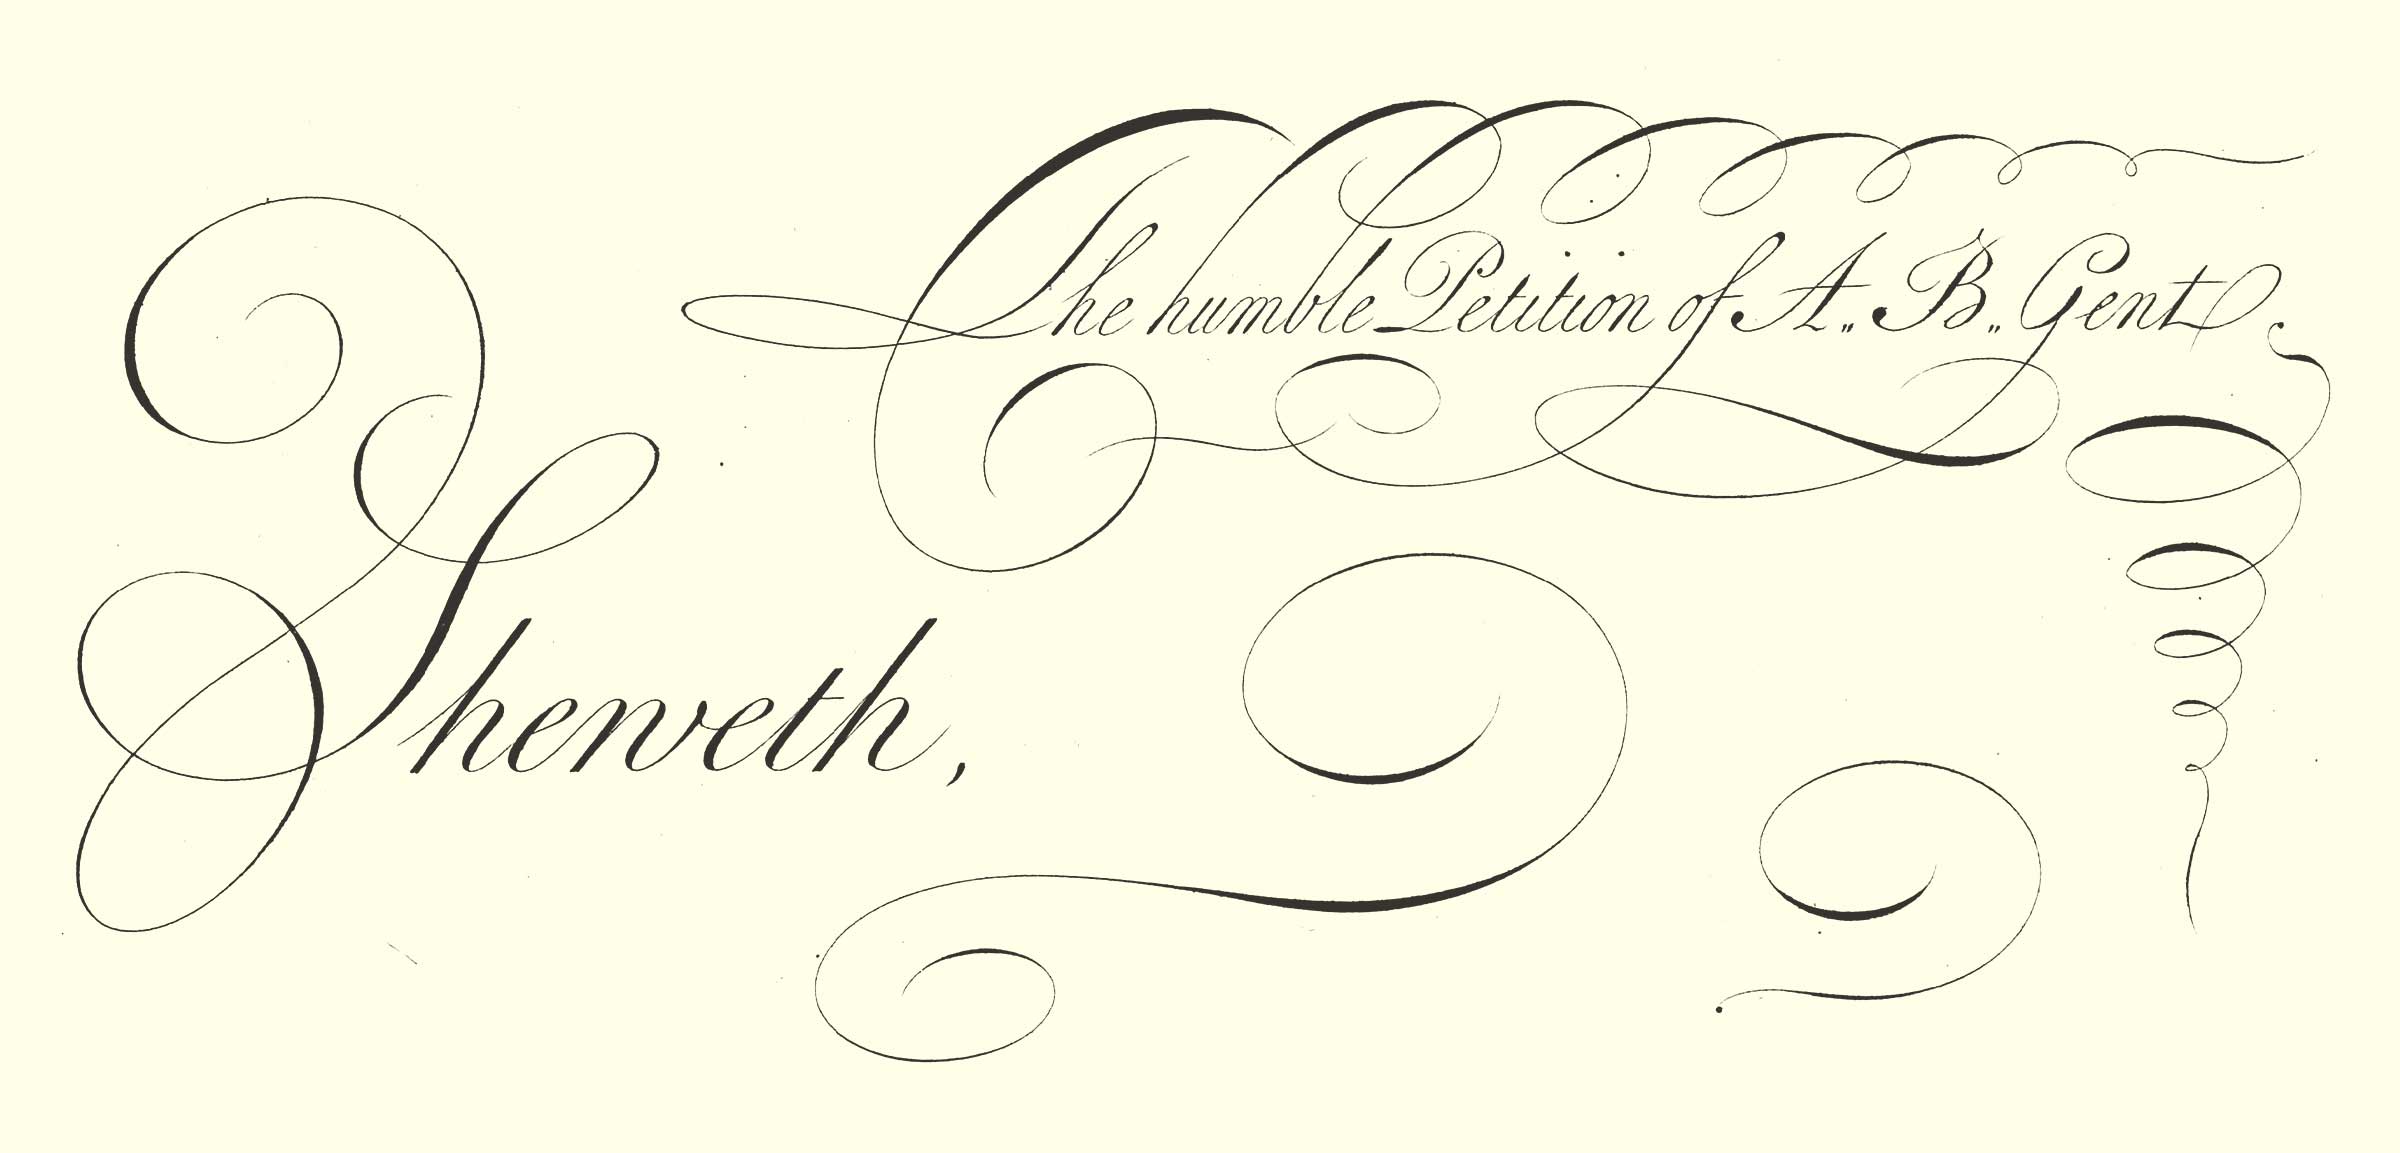 The humble Petition of A„ B„ Gent.
Sheweth,